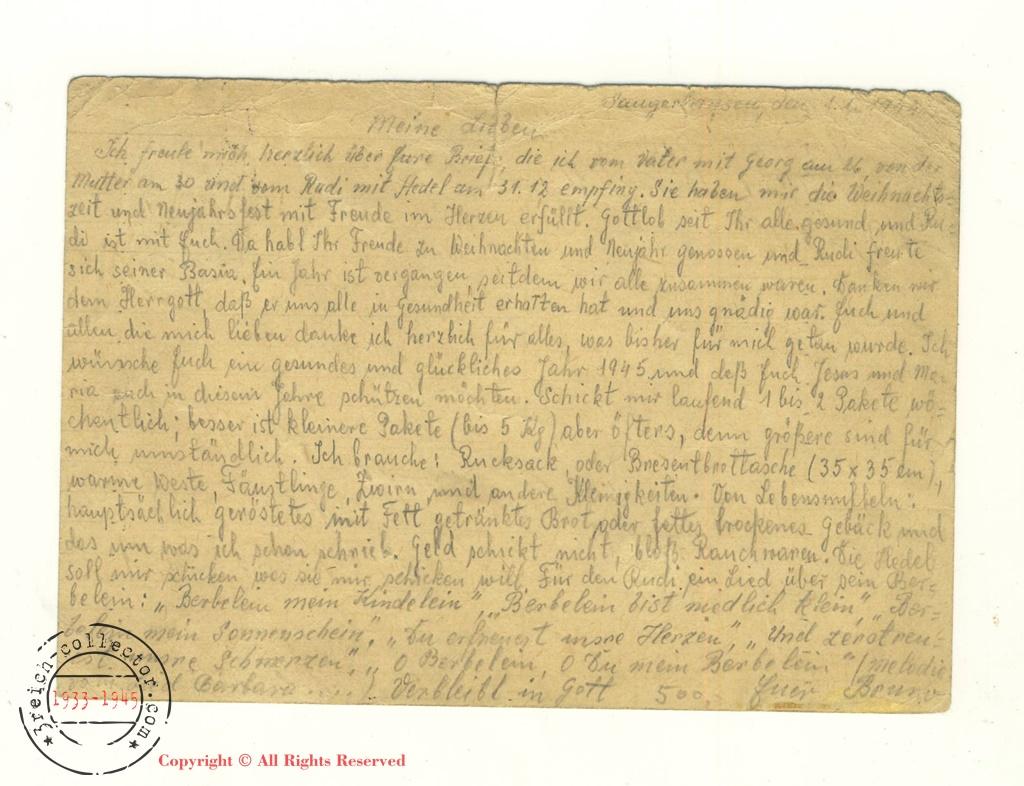 Sangerhausen, den 1.1.
Meine Lieben
Ich freute mich herzlich über Eure Briefe, die ich vom Vater mit Georg am 26. von der
Mutter am 30 und vom Rudi mit Hedel am 31.12 empfing. Sie haben mir die Weihnachts-
zeit und Neujahrsfest mit Freude im Herzen erfüllt. Gottlob seit Ihr alle gesund, und Ru-
di ist mit Euch. Da habt Ihr Freude zu Weihnachten und Neujahr genossen und Rudi freute
sich seiner Basia. Ein Jahr ist vergangen, seitdem wir alle zusammen waren. Danken wir
dem Herrgott, daß er uns alle in Gesundheit erhalten hat und uns gnädig war. Euch und
allen, die mich lieben danke ich herzlich für alles, was bisher für mich getan wurde. Ich
wünsche Euch ein gesundes und glückliches Jahr 1945 und daß Euch Jesus und Ma-
ria auch in diesem Jahre schützen möchten. Schickt mir laufend 1 bis 2 Pakete wö-
chentlich; besser ist kleinere Pakete (bis 5 Kg) aber öfters, denn größere sind für
mich umständlich. Ich brauche: Rucksack, oder Bresentbrottasche (35 x 35 cm),
warme Weste, Fäustlinge, Zwirn und andere Kleinigkeiten. Von Lebensmitteln:
hauptsächlich geröstetes mit Fett getränktes Brot, oder fettes trockenes Gebäck und
das um was ich schon schrieb. Geld schickt nicht, bloß Rauchwaren. Die Hedel
soll mir schicken, was sie mir schicken will. Für den Rudi ein Lied über sein Ber-
belein: "Berbelein mein Kindelein", "Berbelein bist niedlich klein", Ber-
belein mein Sonnenschein", "Du erfreuest unsre Herzen", "Und zerstreu-
st unsre Schmerzen", "O Berbelein, O Du mein Berbelein" (Melodie
Barbara.....) Verbleibt in Gott 500 Euer Bruno
3reich-collector.com
1933-1945
Copyright © All Rights Reserved